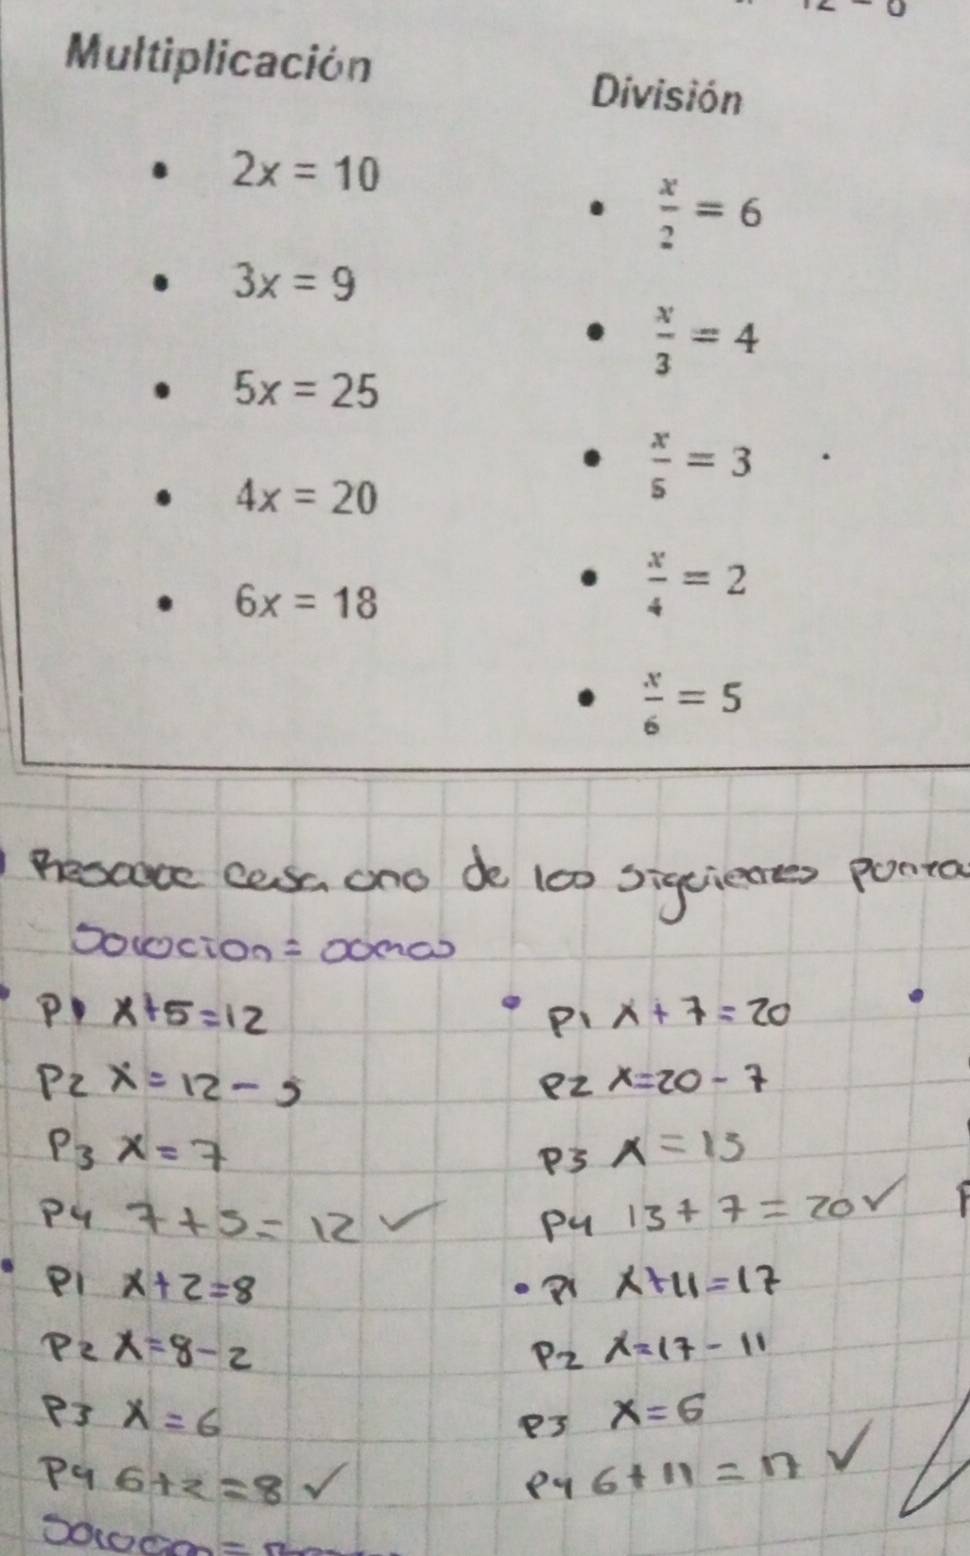 Multiplicación
• 2x = 10
• 3x = 9
• 5x = 25
• 4x = 20
• 6x = 18
División
• x/2 = 6
• x/3 = 4
• x/5 = 3
• x/4 = 2
• x/6 = 5
de los siguientes
Solocion =
• P1 x+5=12
P2 x=12-5
P3 x=7
P4 7+5=12 ✓
• P1 x+2=8
P2 x=8-2
P3 x=6
P4 6+2=8 ✓
• P1 x+7=20
P2 x=20-7
P3 x=13
P4 13+7=20 ✓
• P1 x+11=17
P2 x=17-11
P3 x=6
P4 6+11=17 ✓